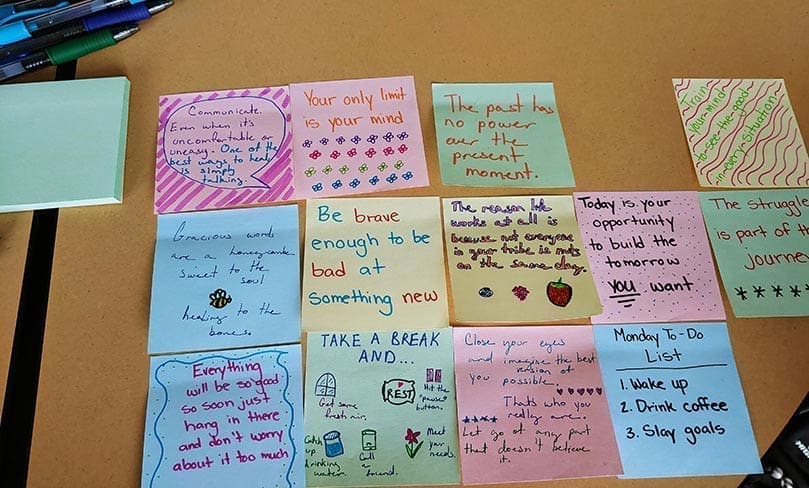 Communicate.
Even when it's
uncomfortable or
uneasy. One of the
best ways to heal
is simply
talking.
Your only limit
is your mind
The past has
no power
over the
present
moment.
Train
your mind
to see the good
in every situation
Gracious words
are a honeycomb
sweet to the
soul
healing to the
bones
Be brave
enough to be
bad at
something new
The reason life
works at all is
because not everyone
in your tribe is nuts
on the same day.
Today is your
opportunity
to build the
tomorrow
YOU want
The struggle
is part of the
journey
Everything
will be so good
so soon just
hang in there
and don't worry
about it too much
TAKE A BREAK
AND...
Get some
fresh air.
REST
Hit the
"pause"
button.
Catch
up
drinking
water.
Call
a
friend.
Meet
your
needs.
Close your eyes
and imagine the best
version of
you possible.
That's who you
really are.
Let go of any part
that doesn't believe
it.
Monday To-Do
List
1. Wake up
2. Drink coffee
3. Slay goals